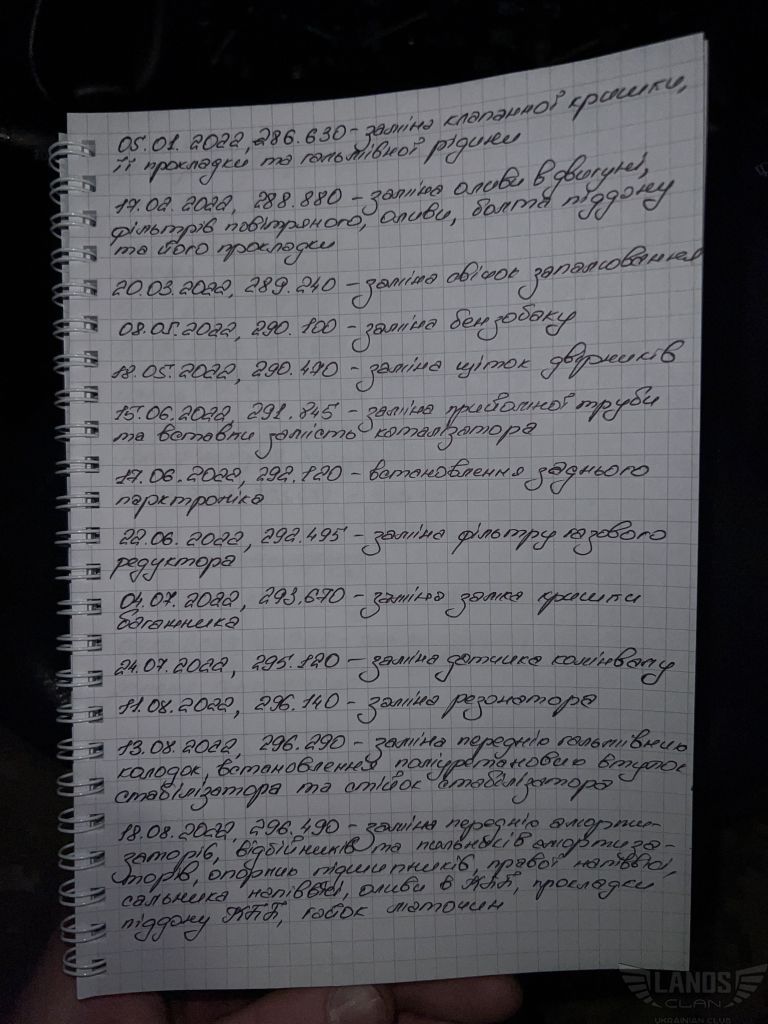 05.01.2022, 286.630 - заміна клапанної кришки,
її прокладки та гальмівної рідини
17.02.2022, 288.880 - заміна оливи в двигуні,
фільтрів повітряного, оливи, болта піддону
та його прокладки
20.03.2022, 289.240 - заміна свічок запалювання
08.05.2022, 290.100 - заміна бензобаку
18.05.2022, 290.490 - заміна щіток двірників
15.06.2022, 291.845 - заміна прийомної труби
та вставки замість каталізатора
17.06.2022, 292.120 - встановлення заднього
парктроніка
22.06.2022, 292.495 - заміна фільтру газового
редуктора
04.07.2022, 293.670 - заміна замка кришки
багажника
24.07.2022, 295.120 - заміна датчика колінвалу
11.08.2022, 296.140 - заміна резонатора
13.08.2022, 296.290 - заміна передніх гальмівних
колодок, встановлення поліуретанових втулок
стабілізатора та стійок стабілізатора
18.08.2022, 296.490 - заміна передніх аморти-
заторів, відбійників та пильників амортиза-
торів, опорних підшипників, правої напіввісі,
сальника напіввісі, оливи в КПП, прокладки
піддону КПП, гайок маточин
LANOS
CLAN
UKRAINIAN CLUB